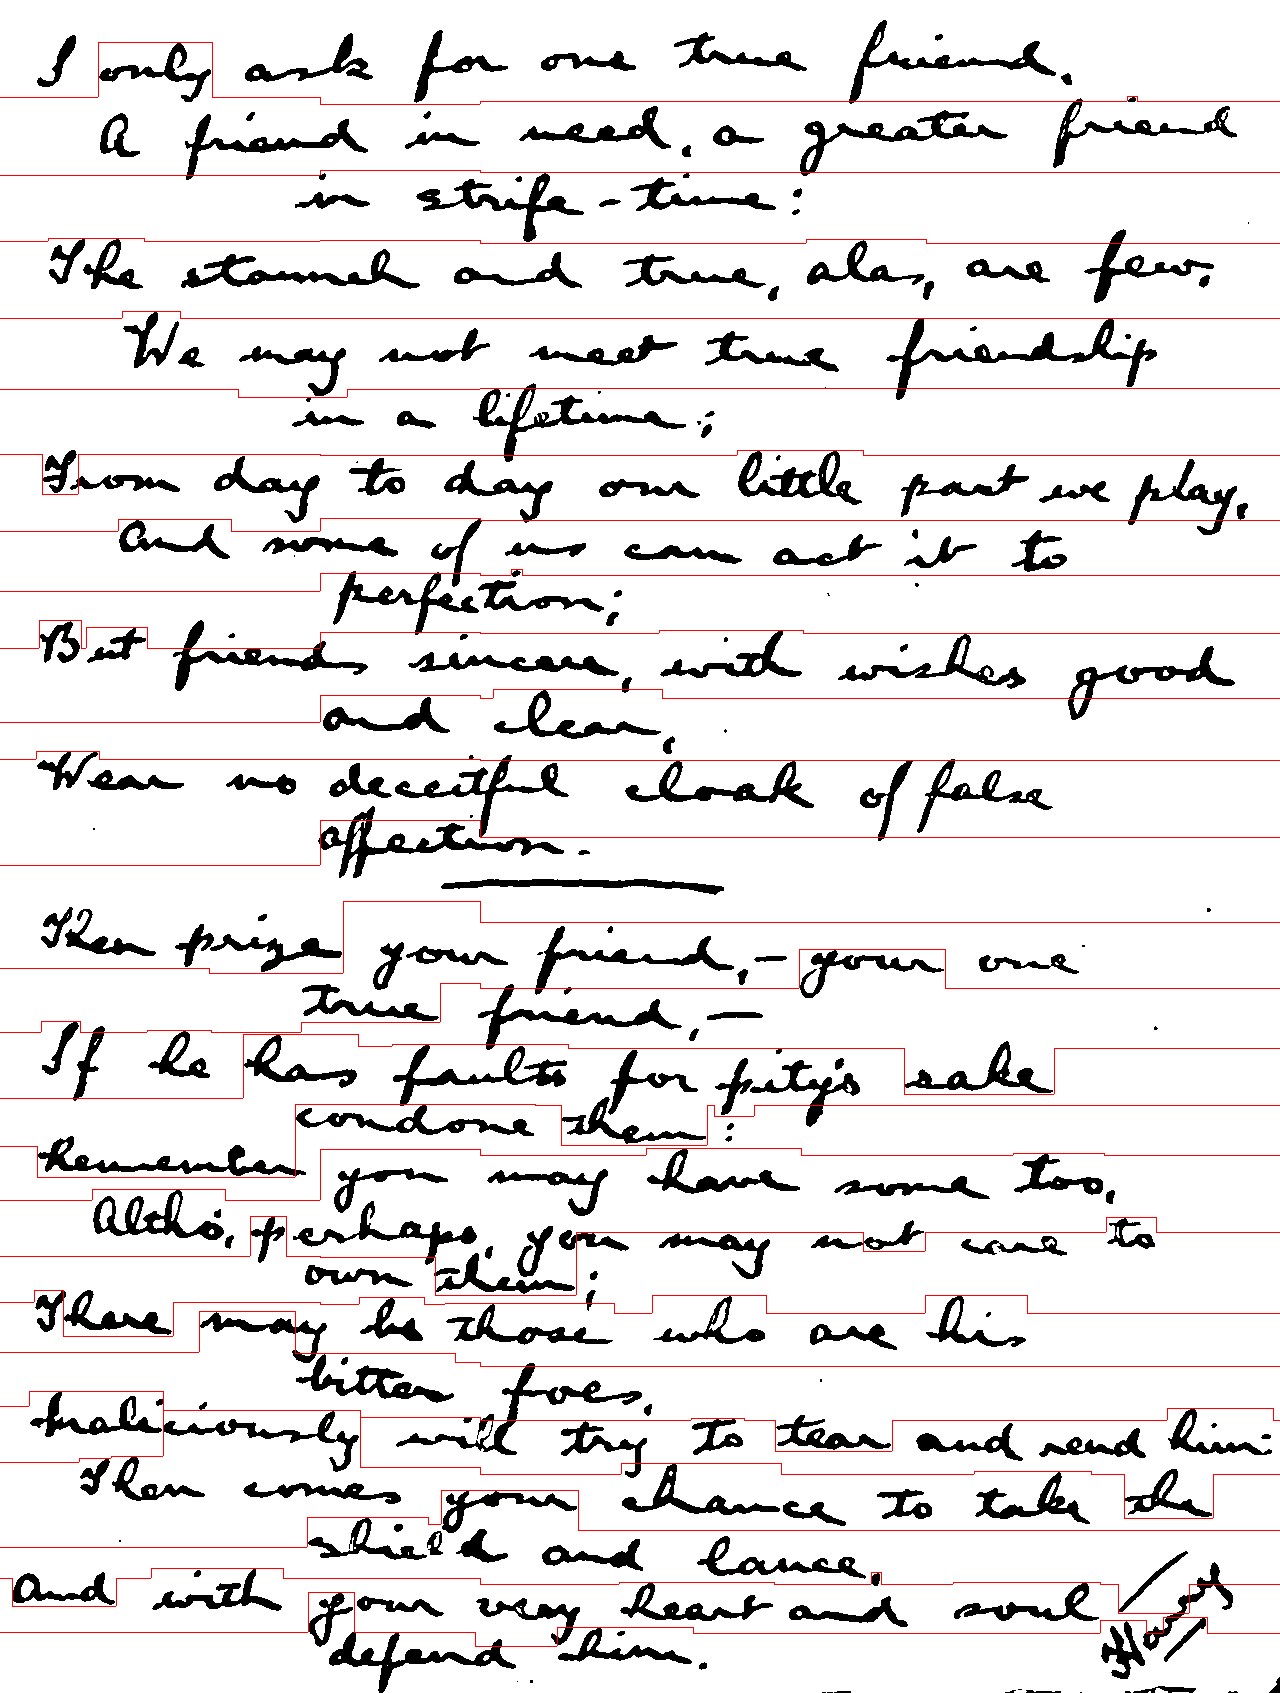 I only ask for one true friend.
A friend in need, a greater friend
in strife-time:
The staunch and true, alas, are few.
We may not meet true friendship
in a lifetime;
From day to day our little part we play,
And some of us can act it to
perfection;
But friends sincere, with wishes good
and clear,
Wear no deceitful cloak of false
affection.
Then prize your friend,- your one
true friend,-
If he has faults for pity's sake
condone them:
Remember you may have some too,
Altho, perhaps, you may not care to
own them;
There may be those who are his
bitter foes,
Maliciously will try to tear and rend him:
Then comes your chance to take the
shield and lance,
And with your very heart and soul
defend him.